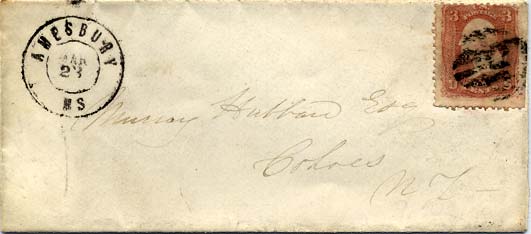 AMESBURY
MAR
23
MS
3 3
Murray Hubbard Esq
Cohoes
N Y